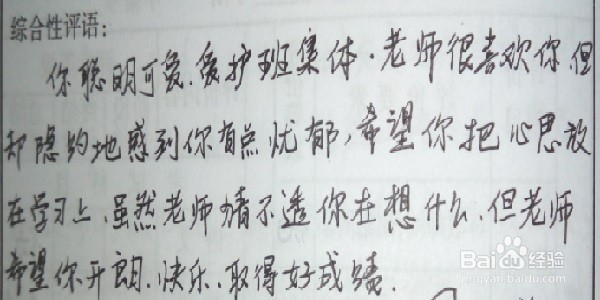 综合性评语:
你聪明可爱、爱护班集体.老师很喜欢你,但
却隐约地感到你有点忧郁,希望你把心思放
在学习上、虽然老师猜不透你在想什么、但老师
希望你开朗、快乐、取得好成绩.
Bai百度经验
jingyan.baidu.com